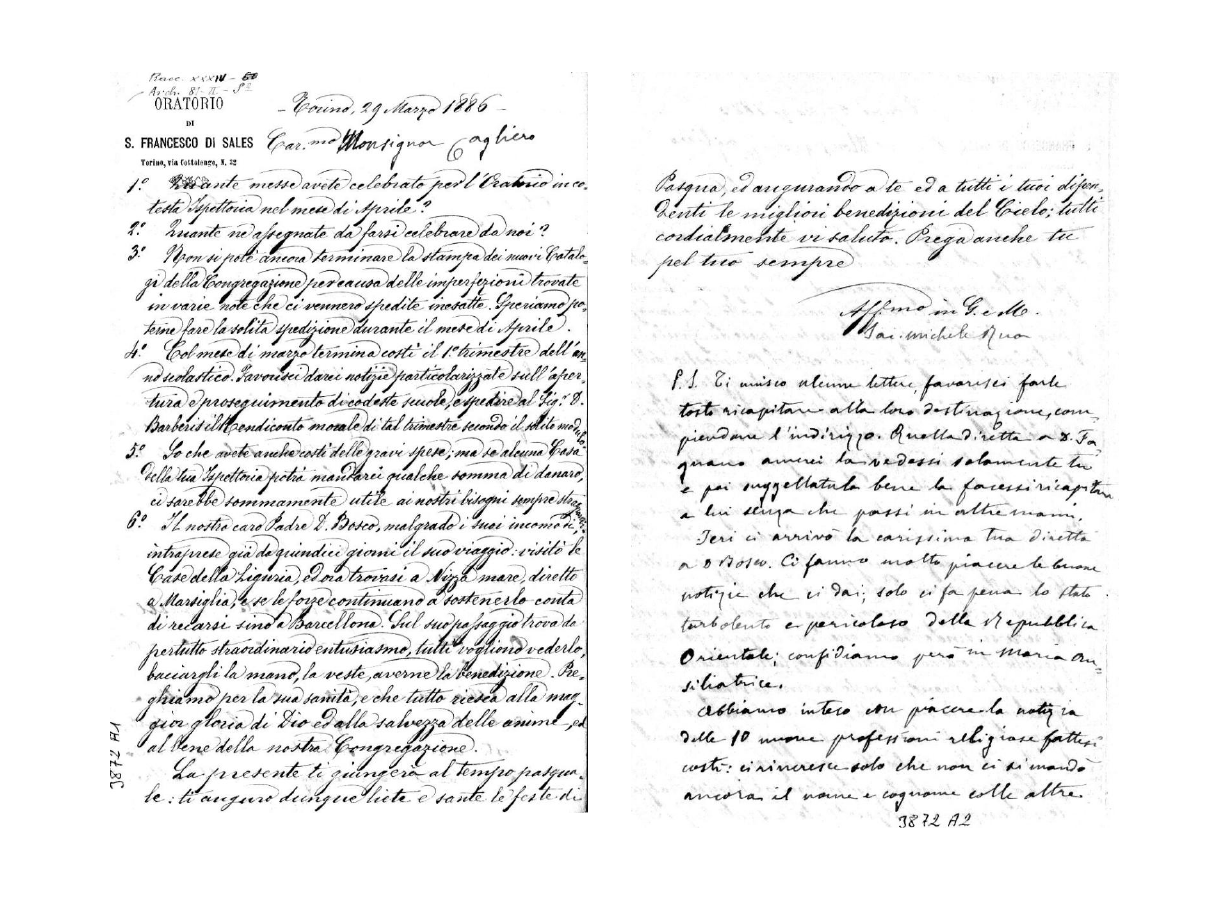 Racc. XXXIV - 50
Arch. 81. II - S^a
ORATORIO
DI
S. FRANCESCO DI SALES
Torino, via Cottolengo, N. 32
- Torino, 29 Marzo 1886 -
Car.mo Monsignor Cagliero
1.° Quante messe avete celebrato per l'Oratorio in co-
testa Ispettoria nel mese di Aprile?
2.° Quante ne assegnate da farsi celebrare da noi?
3.° Non si potè ancora terminare la stampa dei nuovi Catalo-
gi della Congregazione per causa delle imperfezioni trovate
in varie note che ci vennero spedite inesatte. Speriamo po-
terne fare la solita spedizione durante il mese di Aprile.
4.° Col mese di marzo termina costì il 1.° trimestre dell'an-
no scolastico. Favorisci darci notizie particolarizzate sull'aper-
tura e proseguimento di codeste scuole, e spedire al Sig.r D.
Barberis il Rendiconto morale di tal trimestre secondo il solito modulo.
5.° So che avete anche costì delle gravi spese; ma se alcuna Casa
della tua Ispettoria potrà mandarci qualche somma di danaro,
ci sarebbe sommamente utile ai nostri bisogni sempre
6.° Il nostro caro Padre D. Bosco, malgrado i suoi incomodi,
intraprese già da quindici giorni il suo viaggio: visitò le
Case della Liguria, ed ora trovasi a Nizza mare, diretto
a Marsiglia, e se le forze continuano a sostenerlo conta
di recarsi sino a Barcellona. Sul suo passaggio trova da
pertutto straordinario entusiasmo, tutti vogliono vederlo,
baciargli la mano, la veste, averne la benedizione. Pre-
ghiamo per la sua sanità, e che tutto riesca alla mag-
gior gloria di Dio ed alla salvezza delle anime, ed
al bene della nostra Congregazione.
La presente ti giungerà al tempo pasqua-
le: ti auguro dunque liete e sante le feste di
3872 A1
Pasqua, ed augurando a te ed a tutti i tuoi dipen-
denti le migliori benedizioni del Cielo; tutti
cordialmente vi saluto. Prega anche tu
pel tuo sempre
Aff.mo in G. e M.
Sac. Michele Rua
P.S. Ti unisco alcune lettere favorisci farle
tosto ricapitare alla loro destinazione, com-
piendone l'indirizzo. Quella diretta a D. Fa-
gnano amerei la vedessi solamente tu
e poi suggellatala bene la facessi ricapitare
a lui senza che passi in altre mani.
Ieri ci arrivò la carissima tua diretta
a D. Bosco. Ci fanno molto piacere le buone
notizie che ci dai; solo ci fa pena lo stato
turbolento e pericoloso della Repubblica
Orientale; confidiamo però in Maria Au-
siliatrice.
Abbiamo inteso con piacere la notizia
delle 10 nuove professioni religiose fattesi
costì: ci rincresce solo che non ci si mandò
ancora il nome e cognome colle altre
3872 A2